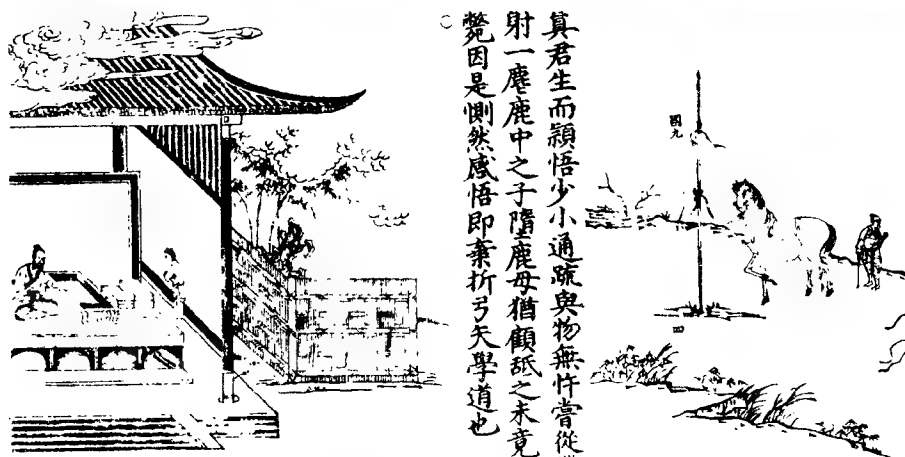 真君生而頴悟少小通疏與物無忤嘗從
射一麀鹿中之子墮鹿母猶顧舐之未竟
斃因是惻然感悟即棄折弓矢學道也
國九
四